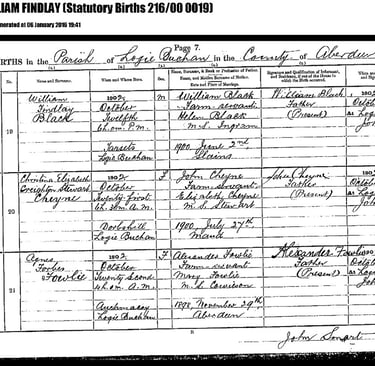 IAM FINDLAY (Statutory Births 216/00 0019)
nerated at 06 January 2016 19:41
Page 7.
BIRTHS in the Parish of Logie Buchan in the County of Aberdeen
No.
Name and Surname.
When and Where Born.
Sex.
Name, Surname, & Rank or Profession of Father.
Name, and Maiden Surname of Mother.
Date and Place of Marriage.
Signature and Qualification of Informant,
19
William
Findlay
Black
1902,
October
Twelfth
6h. 0m. P.M.
Logie Buchan
M
William Black
Farm servant
Helen Black
M.S. Ingram
1900, June 2nd
Slains
William Black
Father
(Present)
20
Christina Elizabeth
Creighton Stewart
Cheyne
1902,
October
Twenty first
A.M.
Logie Buchan
F
John Cheyne
Farm servant
Elizabeth Cheyne
M.S. Stewart
1900, July 27th
John Cheyne
Father
(Present)
21
Agnes
Forbes
Fowlie
1902,
October
Twenty second
A.M.
Auchmacoy
Logie Buchan
F
Alexander Fowlie
Farm servant
Fowlie
1898, November 29th
Aberdeen
Alexander Fowlie
Father
(Present)
John